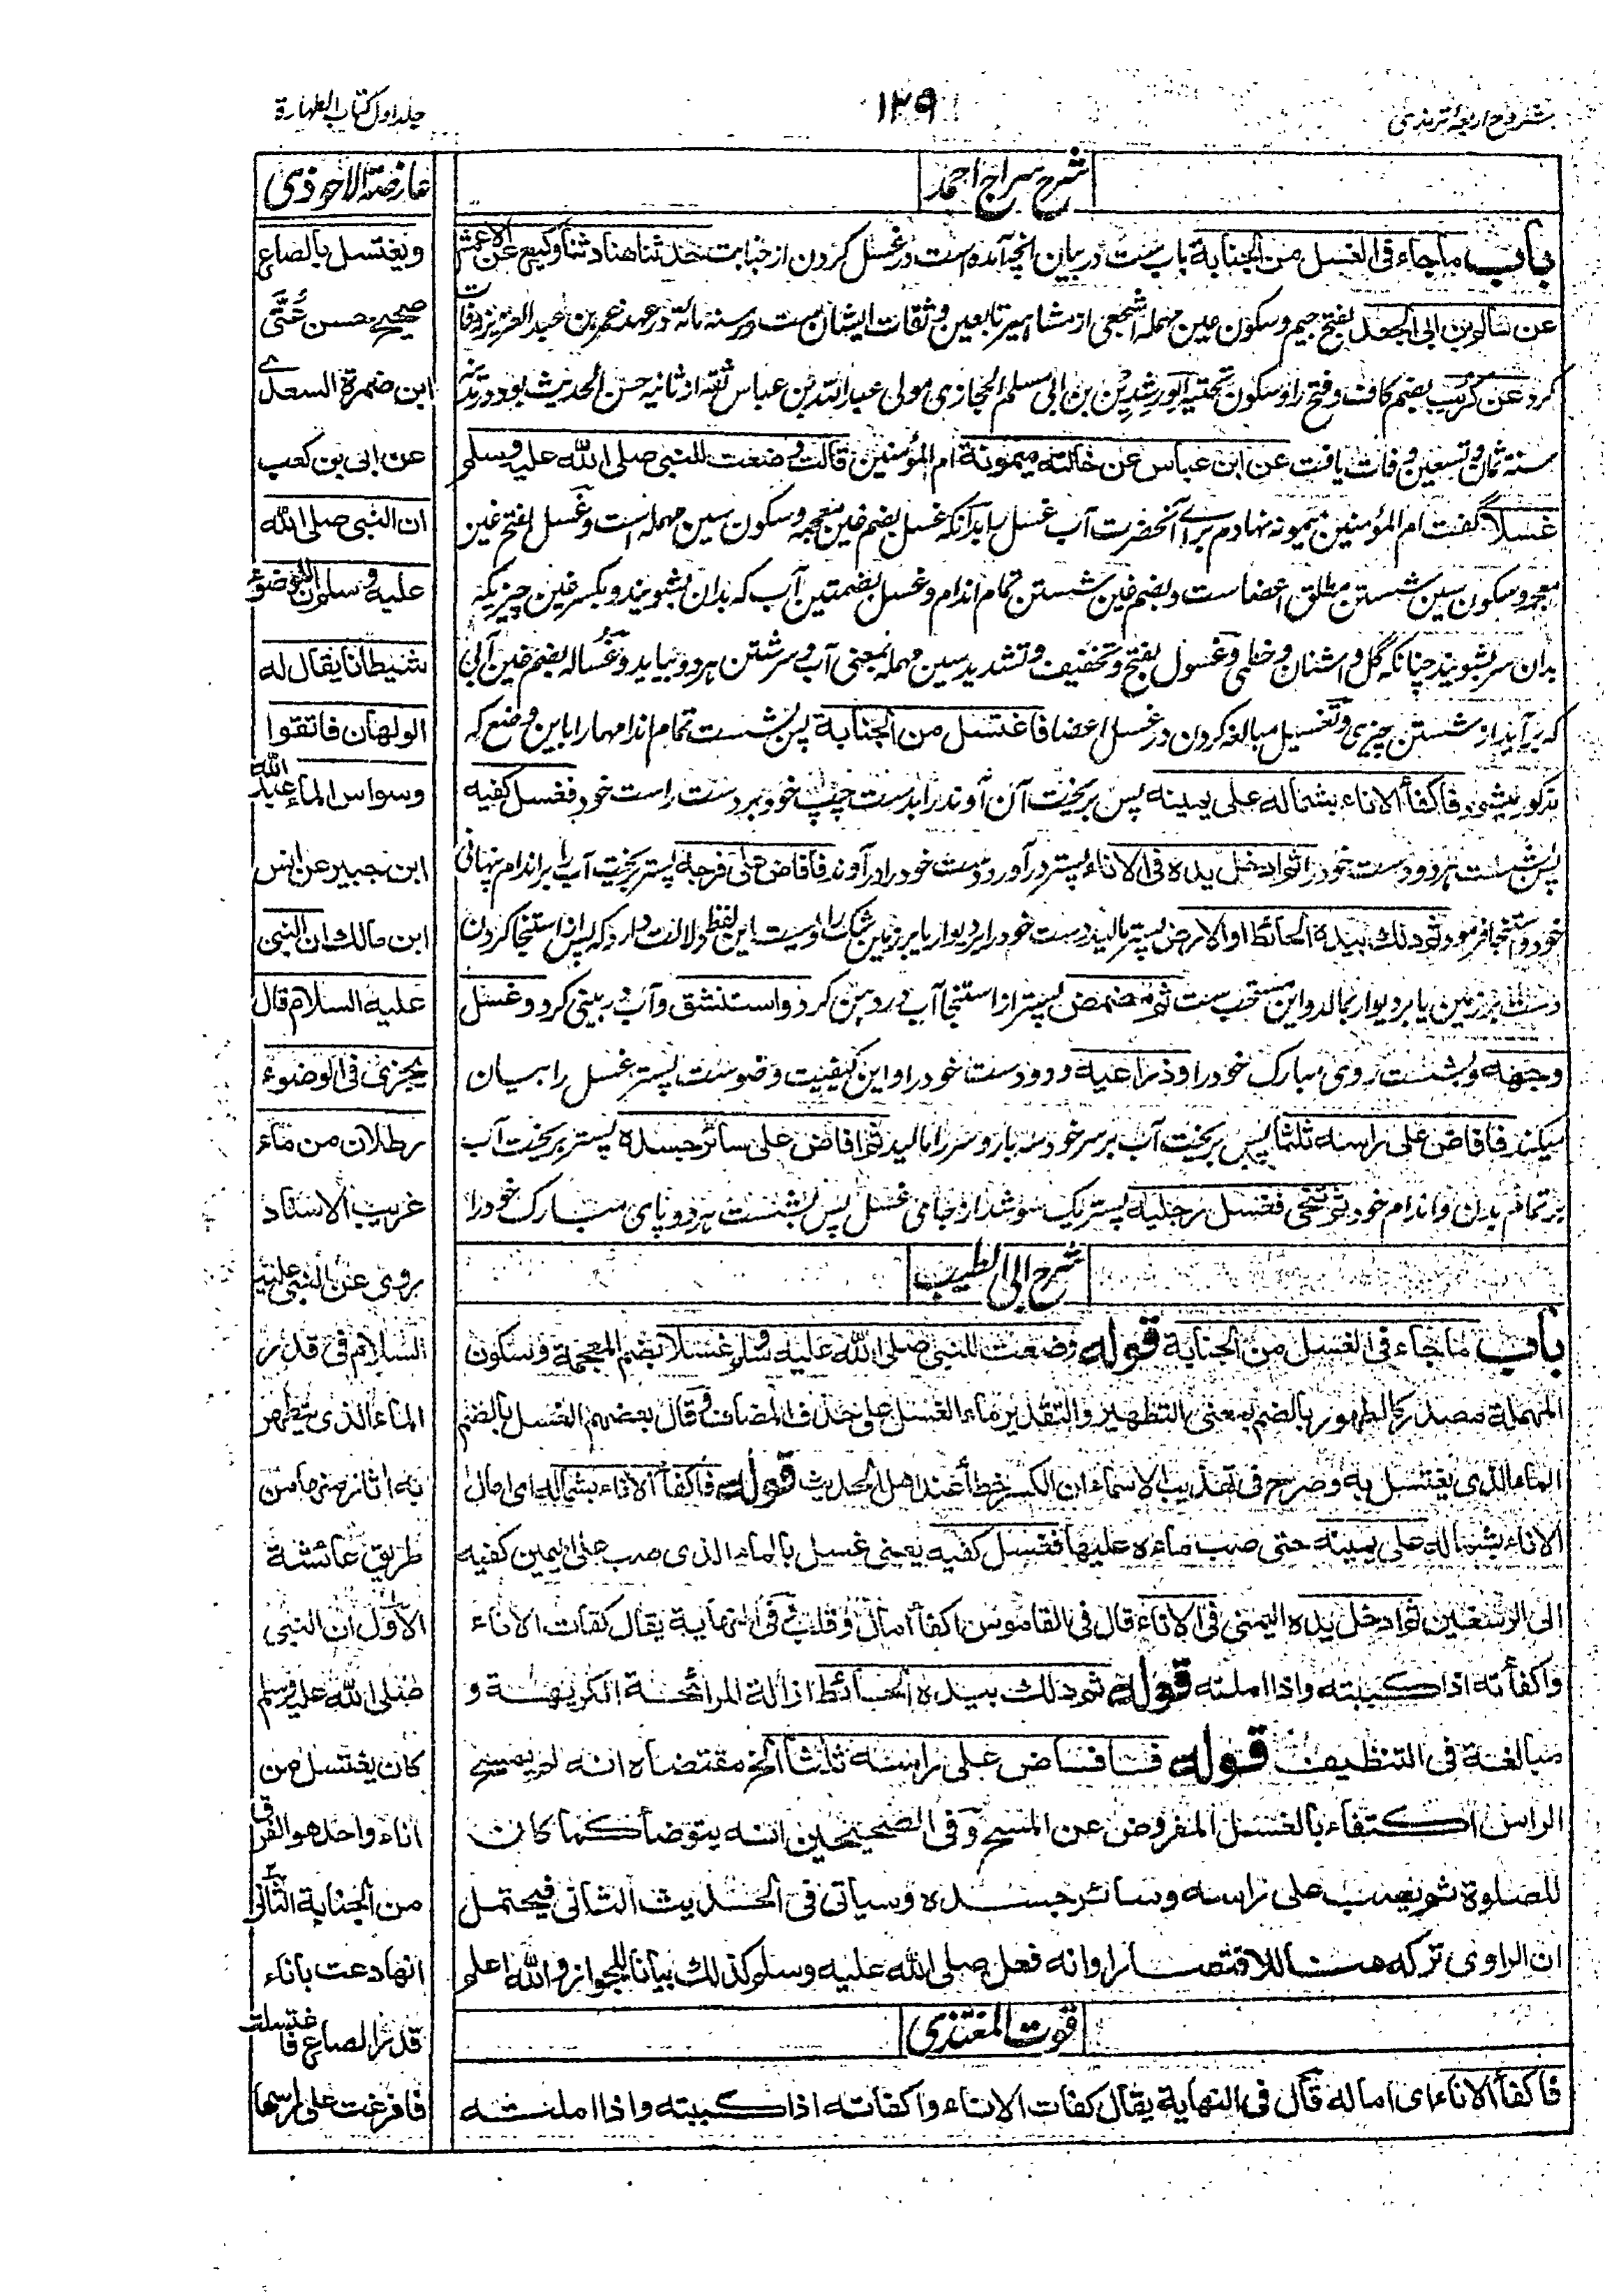 شروح اربعهٔ ترمذی
۱۲۹
جلد اول کتاب الطهارة
شرح سراج احمد
باب ما جاء فی الغسل من الجنابة باب ست در بیان آنچه آمده است در غسل کردن از جنابت حدثنا هناد ثنا وکیع عن الاعمش
عن سالم بن ابی الجعد بفتح جیم وسکون عین مهمله اشجعی از مشاهیر تابعین وثقات ایشان ست در سنه مائة در عهد عمر بن عبد العزیز وفات
کرد عن کریب بضم کاف وفتح را وسکون تحتیه ابو رشدین بن ابی مسلم الحجازی مولی عبد الله بن عباس ثقه از ثانیه حسن الحدیث بود در
سنه ثمان وتسعین وفات یافت عن ابن عباس عن خالته میمونة ام المؤمنین قالت وضعت للنبی صلی الله علیه وسلم
غسلا گفت ام المؤمنین میمونه نهادم برای آنحضرت آب غسل را بدانکه غسل بضم غین معجمه وسکون سین مهمله است وغسل بفتح غین
معجمه وسکون سین شستن مطلق اعضا ست وبضم غین شستن تمام اندام وغسل بضمتین آب که بدان بشویند وبکسر غین چیزیکه
بدان سر بشویند چنانکه گل و اشنان وخطمی وغسول بفتح وتخفیف وتشدید سین مهمله بمعنی آب وسرشتن هر دو بیاید وغساله بضم غین آبی
که برآید از شستن چیزی وتغسیل مبالغه کردن در غسل اعضا فاغتسل من الجنابة پس بشست تمام اندامها را باین وضع که
مذکور میشود فاکفأ الاناء بشماله علی یمینه پس بریخت آن آوند را بدست چپ خود بر دست راست خود فغسل کفیه
پس شست هر دو دست خود را ثم ادخل یده فی الاناء پستر در آورد دست خود را در آوند فافاض علی فرجه پستر بریخت آب را بر اندام نهانی
خود واستنجا فرمود ثم دلك بیده الحائط او الارض پستر مالید دست خود را بر دیوار یا بر زمین شک راویست این لفظ دلالت دارد که پس از استنجا کردن
دست بر زمین یا بر دیوار بمالد واین مستحب ست ثم مضمض پستر از استنجا آب در دهن کرد واستنشق وآب در بینی کرد وغسل
وجهه وبشست روی مبارک خود را وذراعیه وهر دو دست خود را واین کیفیت وضوست پستر غسل را بیان
میکند فافاض علی راسه ثلثا پس بریخت آب بر سر خود سه بار وسر را مالید ثم افاض علی سائر جسده پستر بریخت آب
بر تمام بدن واندام خود ثم تنحی فغسل رجلیه پستر یک سو شد از جای غسل پس بشست هر دو پای مبارک خود را
شرح ابی الطیب
باب ما جاء فی الغسل من الجنابة قوله وضعت للنبی صلی الله علیه وسلم غسلا بضم المعجمة وسکون
المهملة مصدر کالطهور بالضم بمعنی التطهیر والتقدیر ماء الغسل علی حذف المضاف وقال بعضهم الغسل بالضم
الماء الذی یغتسل به وصرح فی تهذیب الاسماء ان الکسر خطأ عند اهل الحدیث قوله فاکفأ الاناء بشماله ای امال
الاناء بشماله علی یمینه حتی صب ماءه علیها فغسل کفیه یعنی غسل بالماء الذی صب علی الیمین کفیه
الی الرسغین ثم ادخل یده الیمنی فی الاناء قال فی القاموس اکفأ امال وقلب فی النهایة یقال کفأت الاناء
واکفأته اذا کببته واذا املته قوله ثم دلك بیده الحائط ازالة للرائحة الکریهة و
مبالغة فی التنظیف قوله فافاض علی راسه ثلثا الخ مقتضاه انه لم یمسح
الراس اکتفاء بالغسل المفروض عن المسح وفی الصحیحین انه یتوضأ کما کان
للصلوة ثم یصب علی راسه وسائر جسده وسیاتی فی الحدیث الثانی فیحتمل
ان الراوی ترکه هنا للاقتصار او انه فعل صلی الله علیه وسلم کذلك بیانا للجواز والله اعلم
قوت المغتذی
فاکفأ الاناء ای اماله قال فی النهایة یقال کفأت الاناء واکفأته اذا کببته واذا املته
عارضة الاحوذی
ویغتسل بالصاع
صحیح حسن عُتَیّ
ابن ضمرة السعدی
عن ابی بن کعب
ان النبی صلی الله
علیه وسلم ان للوضوء
شیطانا یقال له
الولهان فاتقوا
وسواس الماء عبد الله
ابن جبیر عن انس
ابن مالك ان النبی
علیه السلام قال
یجزی فی الوضوء
رطلان من ماء
غریب الاسناد
روی عن النبی علیه
السلام فی قدر
الماء الذی یتطهر
به اثار منها من
طریق عائشة
الاول ان النبی
صلی الله علیه وسلم
کان یغتسل من
اناء واحد هو الفرق
من الجنابة الثانی
انها دعت باناء
قدر الصاع فاغتسلت
فافرغت علی راسها